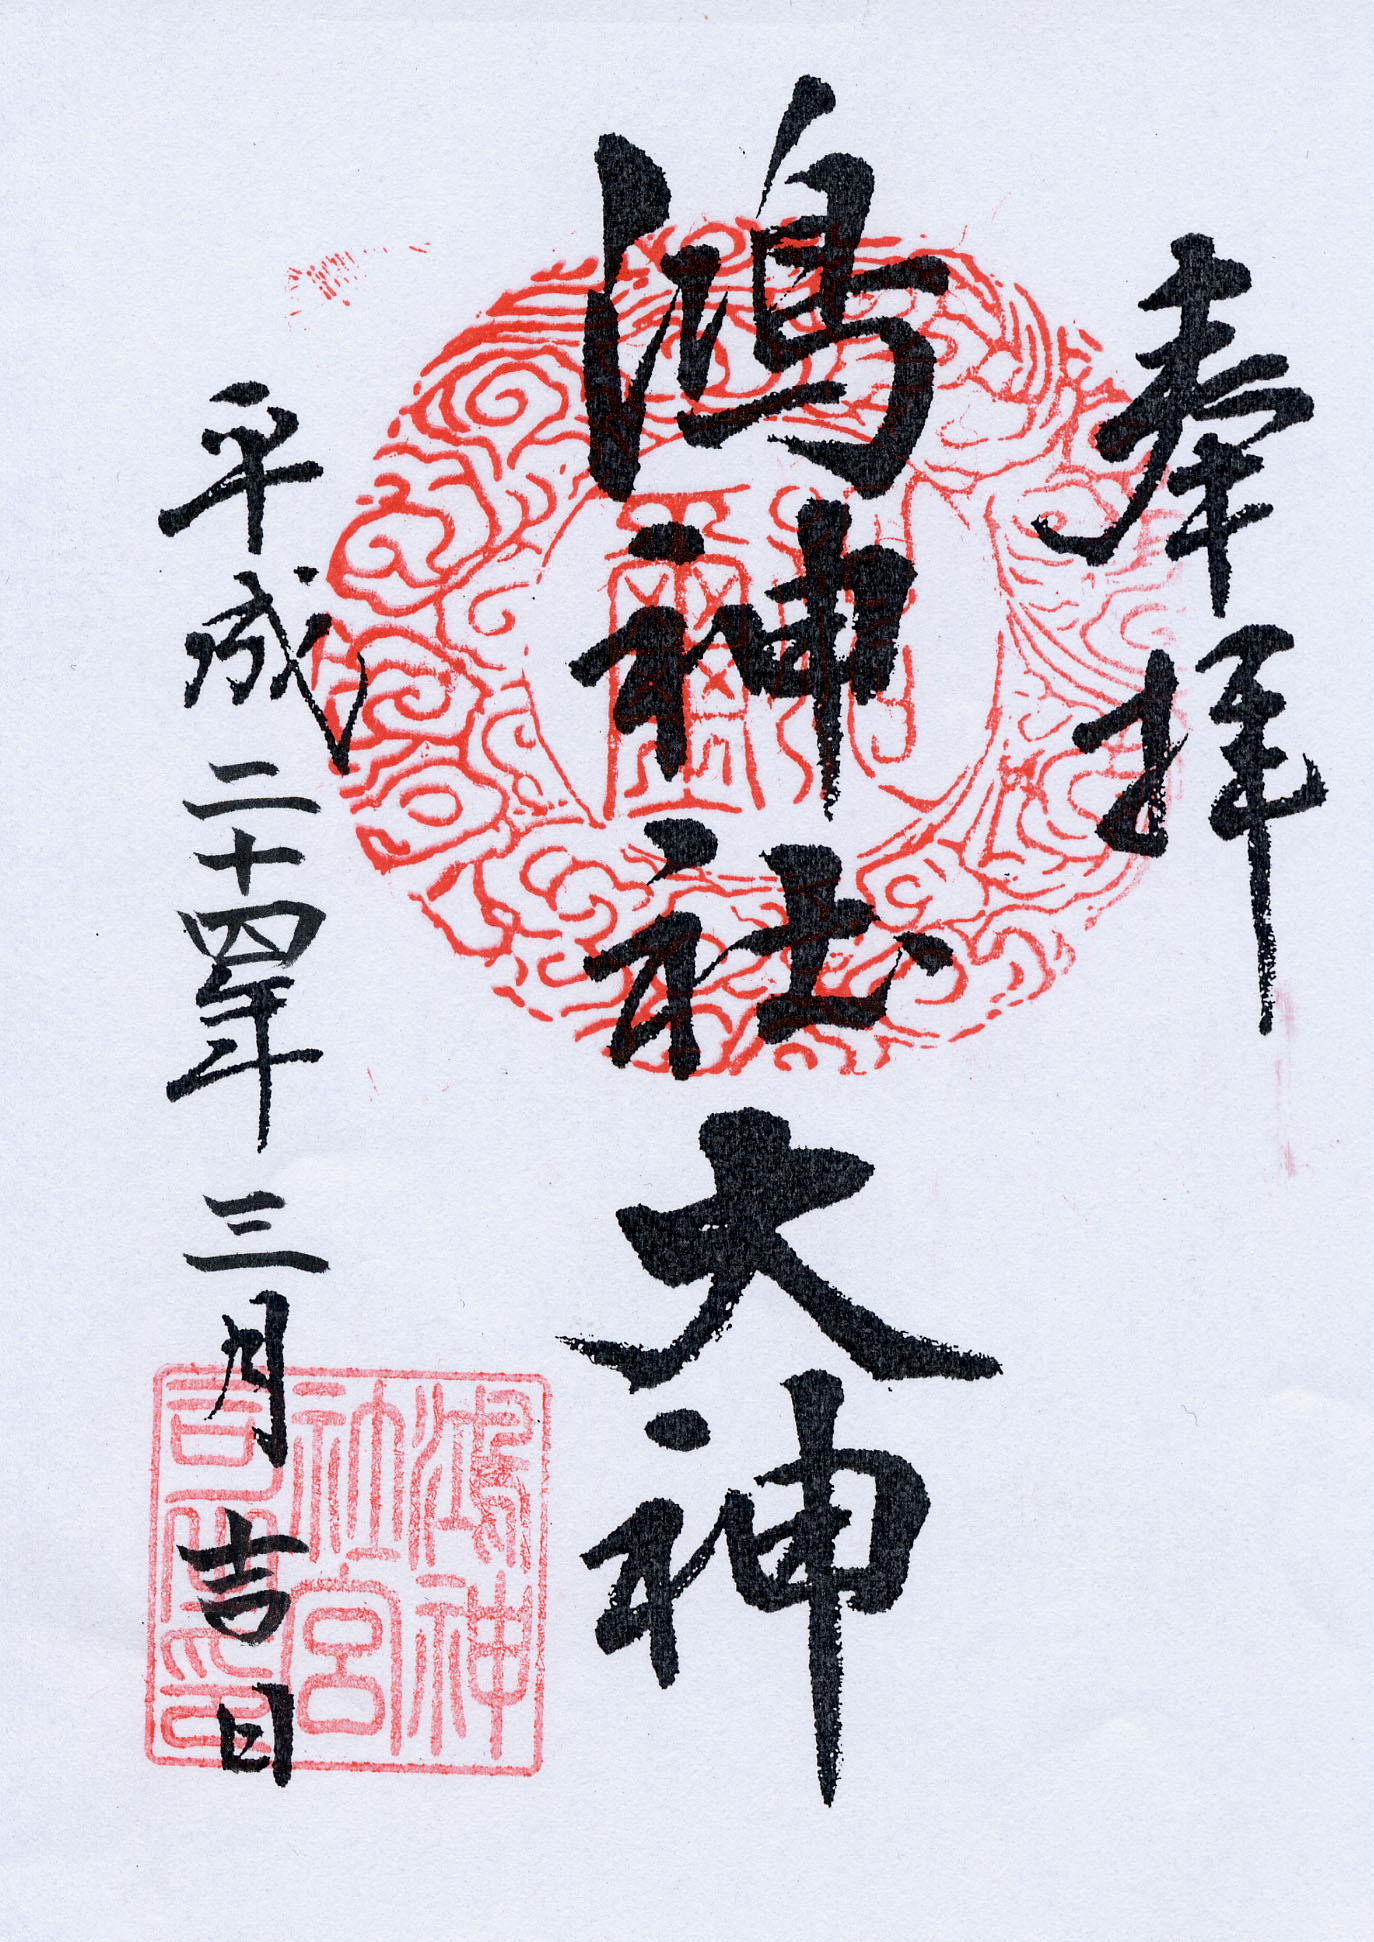 奉拝
鴻神社大神
平成二十四年三月吉日
鴻神
社宮
司之印